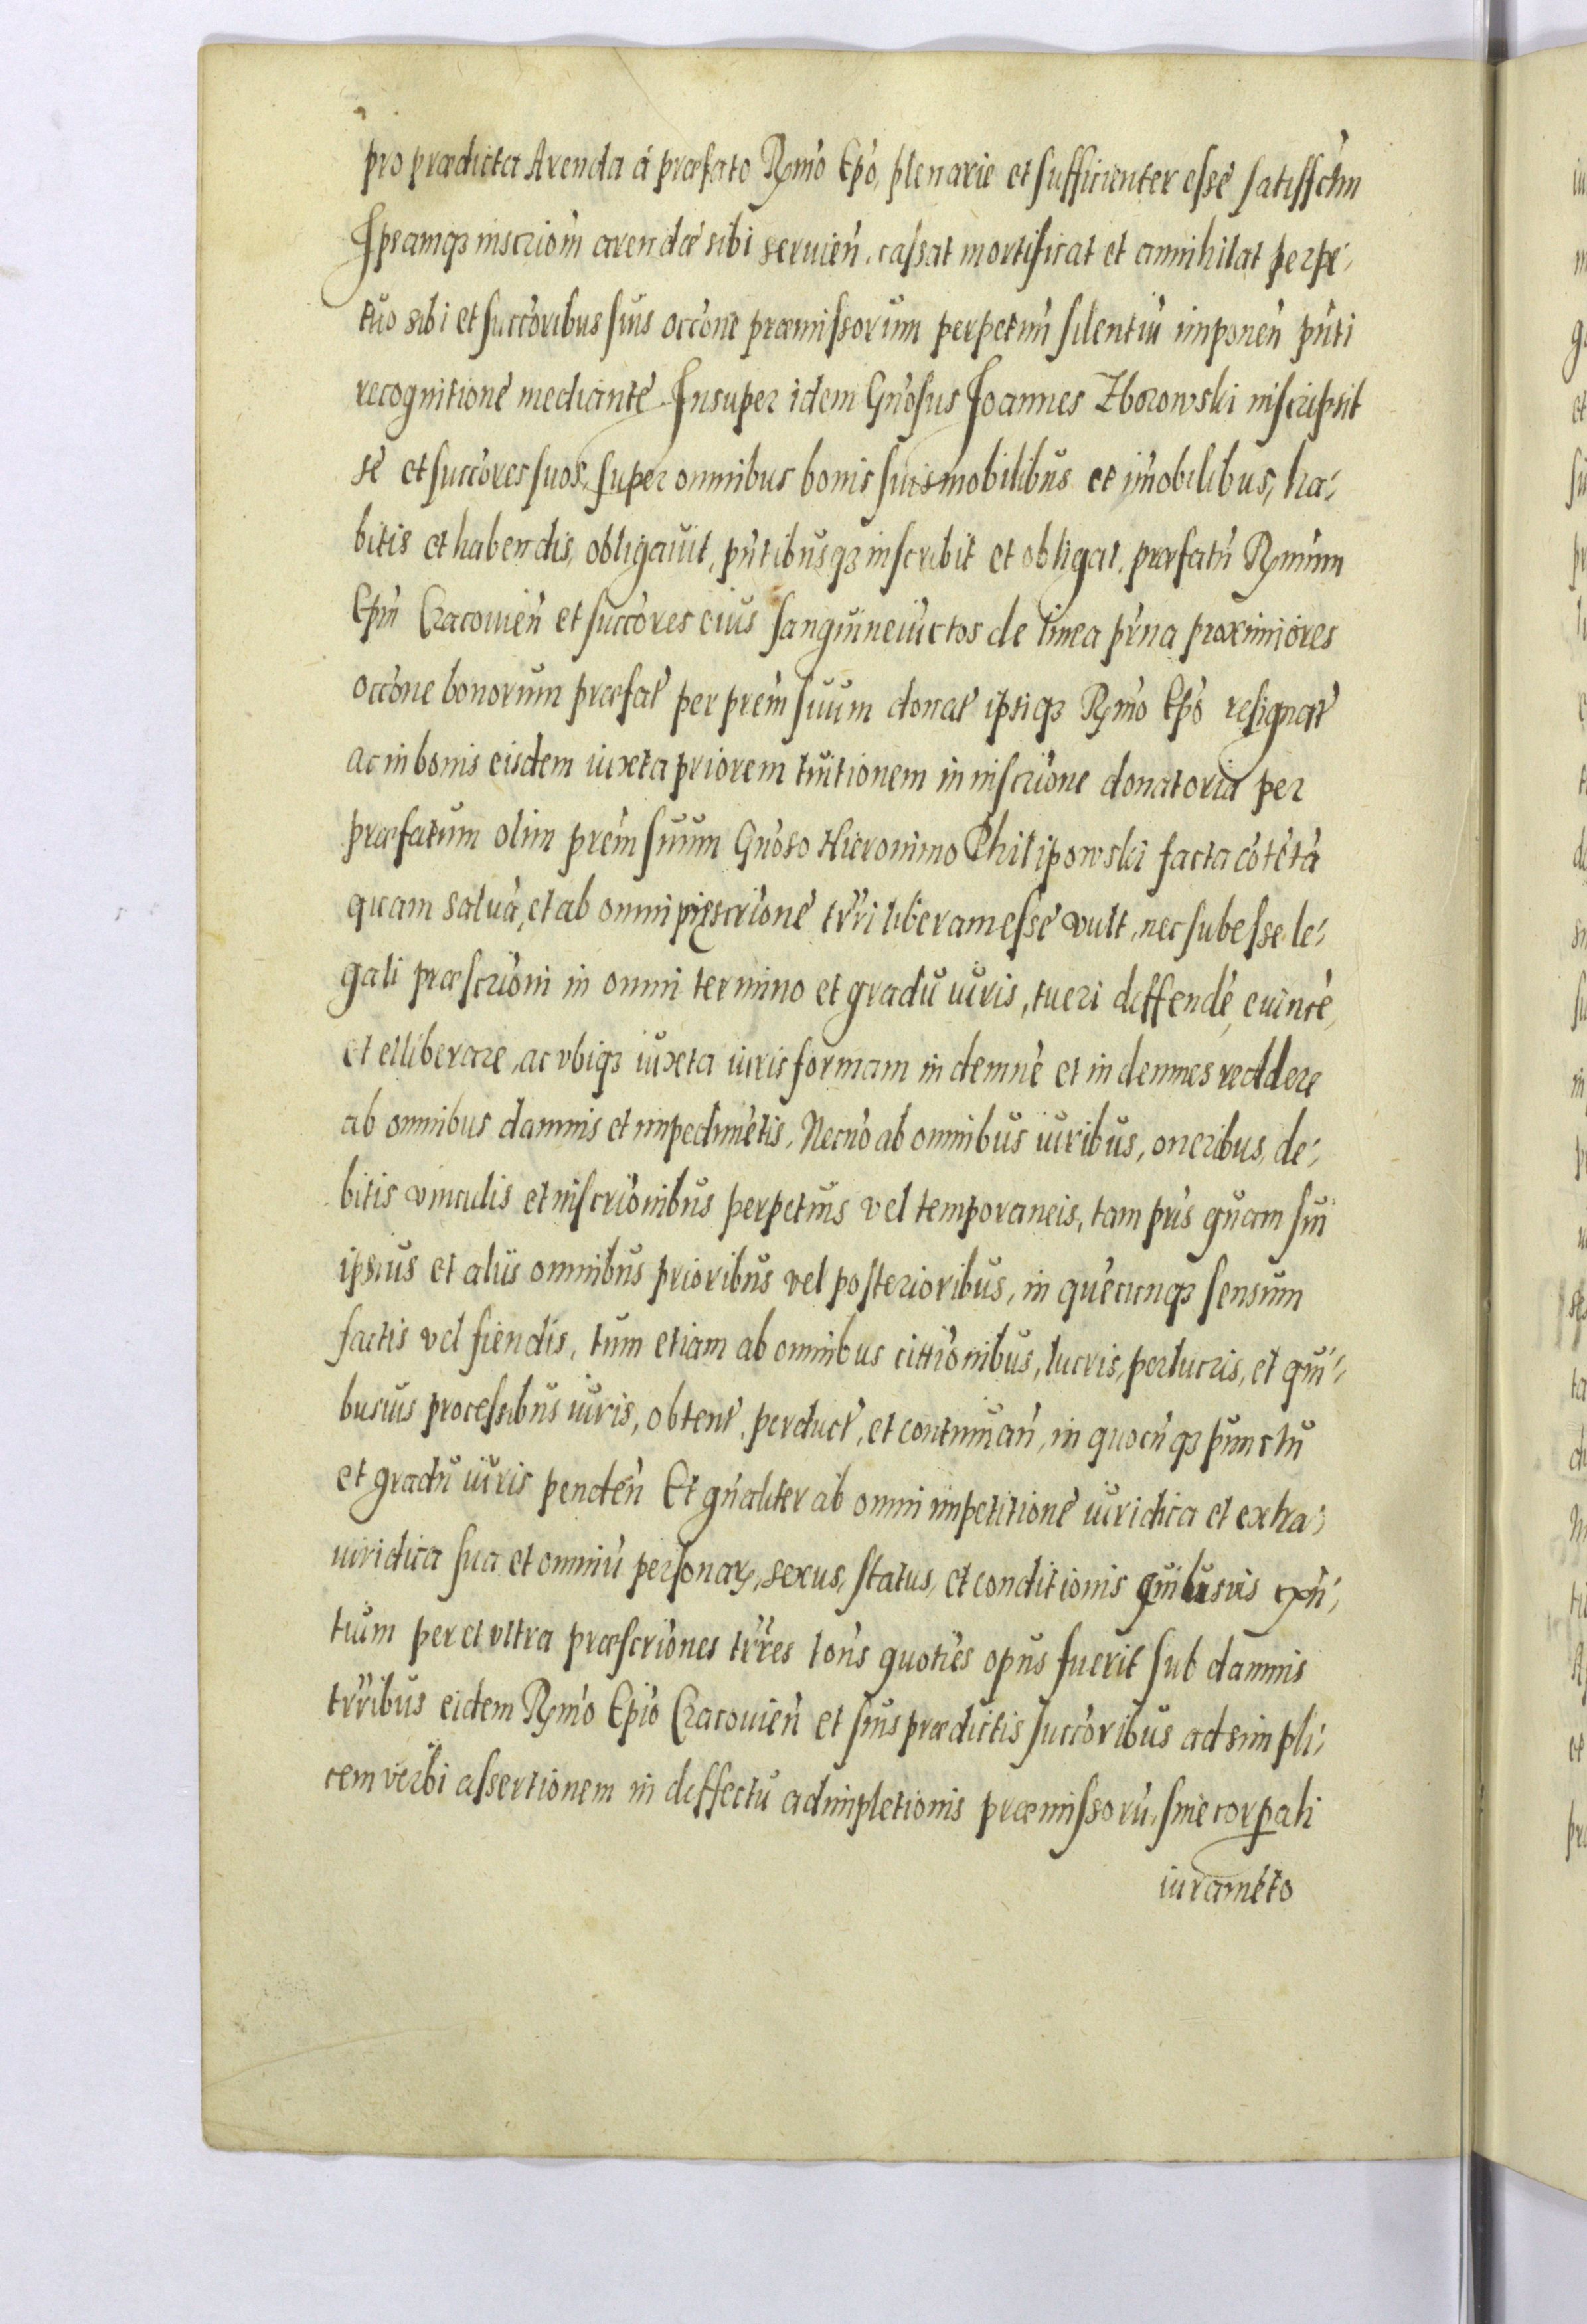 pro prædicta Arenda á præfato Rm̃o Ep̃o, plenarie et sufficienter esse satisfc̃tm
Ipsamq3 inscrio͂m arendæ sibi seruien͂, cassat mortificat et annihilat perpe-
tuo sibi et succo͂ribus suis occo͂ne præmissorum perpetuu͂ silentiu͂ imponen͂ pn͂ti
recognitione mediante Insuper idem Gn͂osus Joannes Zborowski inscripsit
se et succo͂res suos, super omnibus bonis suis mobilibus et im͂obilibus, ha-
bitis et habendis, obligauit, pn͂tibusq3 inscribit et obligat, præfatu͂ Rm͂um
Ep͂m Cracouien͂ et succo͂res eius sanguineiu͂ctos de linea pr͂na proximiores
occo͂ne bonorum præfat͂ per pr͂em suum donat͂ ipsiq3 Rm͂o Ep͂o resignat͂
ac in bonis eisdem iuxta priorem tuitionem in inscrio͂ne donatoria per
præfatum olim pr͂em suum Gn͂oso Hieronimo Philipowski facta co͂te͂ta͂
quam saluá, et ab omni præscrio͂ne tr͂ri liberam esse vult, nec subesse le-
gali præscrio͂ni in omni termino et gradu iuris, tueri diffende͂, euince͂,
et elliberare, ac vbiq3 iuxta iuris formam indemne͂ et indemnes reddere
ab omnibus damnis et impedime͂tis. Necno͂ ab omnibus iuribus, oneribus, de-
bitis vinculis et inscrio͂nibus perpetuis vel temporaneis, tam pr͂is quam sui
ipsius et aliis omnibus prioribus vel posterioribus, in que͂cunq3 sensum
factis vel fiendis, tum etiam ab omnibus cittio͂nibus, lucris, perlucris, et qui-
busuis processibus iuris, obtent͂, perduct͂, et continuan͂, in quocu͂q3 punctu
et gradu iuris penden͂ Et gn͂aliter ab omni impetitione iuridica et extra-
iuridica sua et omniu͂ personaꝝ, sexus, status, et conditionis quibusuis exn͂-
tium per et vltra præscrio͂nes tr͂res to͂ns quoties opus fuerit sub damnis
tr͂ribus eidem Rm͂o Ep͂o Cracouien͂ et suis prædictis succo͂ribus ad simpli-
cem verbi assertionem in deffectu adimpletionis præmissoru͂, sine corꝑali
iurame͂to